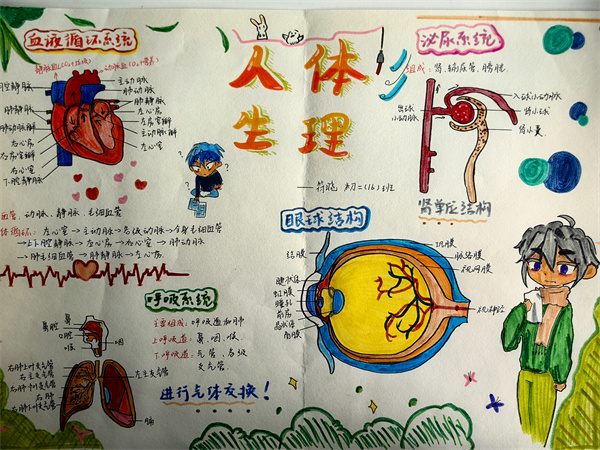 血液循环系统
主动脉
肺动脉
肺静脉
左心房
左房室瓣
主动脉瓣
左心室
腔静脉
肺静脉
肺动脉瓣
右心房
右房室瓣
右心室
下腔静脉
血管：动脉、静脉、毛细血管
体循环：左心室→主动脉→各级动脉→全身毛细血管
→上下腔静脉→右心房→右心室→肺动脉
→肺毛细血管→肺静脉→左心房
人体
生理
初二(16)班
泌尿系统
组成：肾、输尿管、膀胱
入球小动脉
出球
小动脉
肾小球
肾小囊
肾单位结构
眼球结构
结膜
睫状体
虹膜
瞳孔
前房
晶状体
角膜
巩膜
脉络膜
视网膜
视神经
呼吸系统
鼻
鼻腔
口腔
喉
咽
主要组成：呼吸道和肺
上呼吸道：鼻、咽、喉
下呼吸道：气管、各级
支气管
进行气体交换！
右肺上叶支气管
右主支气管
右肺中叶支气管
右肺
右肺下叶支气管
左主支气管